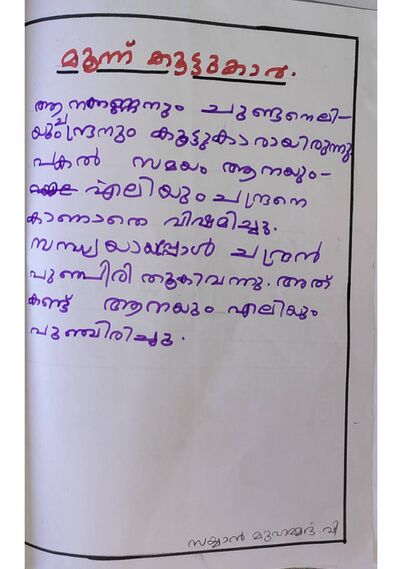 മൂന്ന് കൂട്ടുകാര.
ആനണ്ണനും ചുണ്ടനെലി-
യുംചന്ദ്രനും കൂട്ടുകാരായിരുന്നു
പകൽ സമയം ആനയും-
എലിയും ചന്ദ്രനെ
കാണാതെ വിഷമിച്ചു.
സന്ധ്യയായപ്പോൾ ചന്ദ്രൻ
പുഞ്ചിരി തൂകിവന്നു. അത്
കണ്ട് ആനയും എലിയും
പുഞ്ചിരിച്ചു.
സയ്യാൻ മുഹമ്മദ് വി